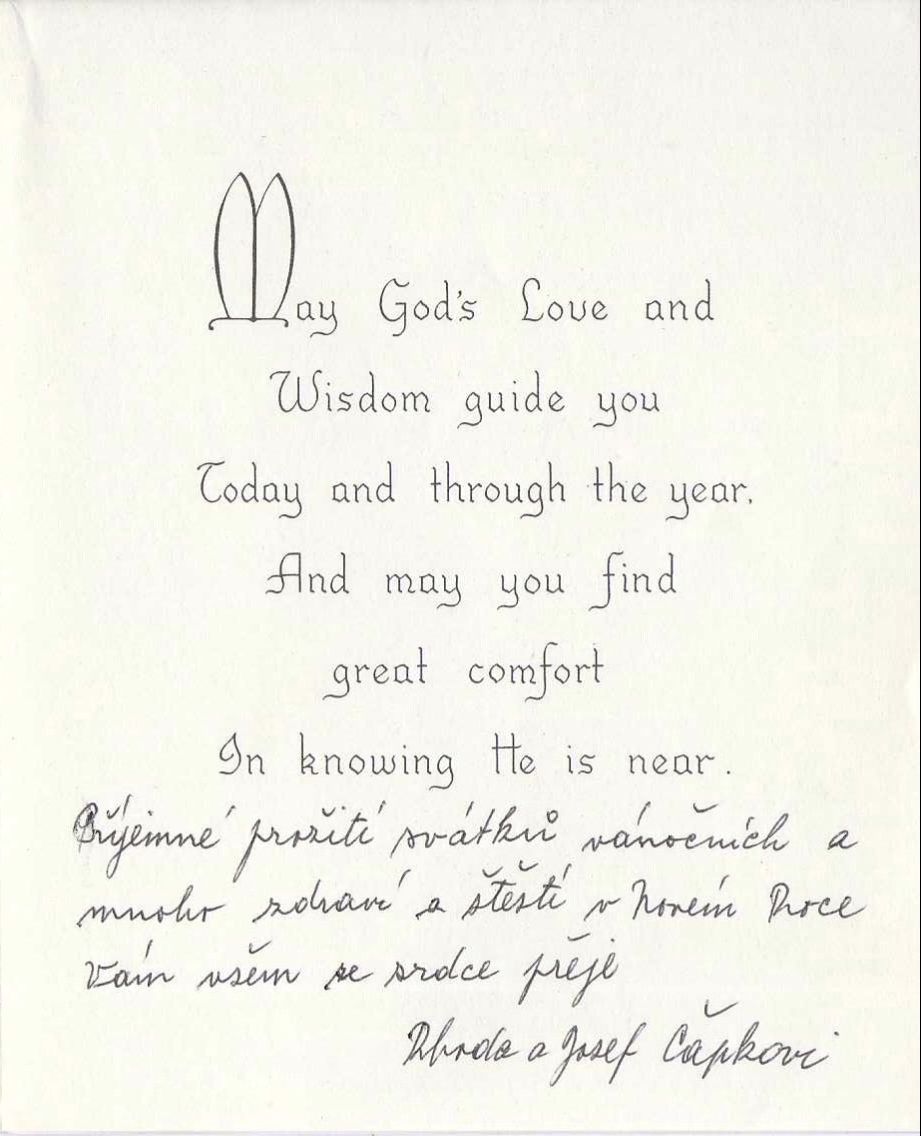 May God's Love and
Wisdom guide you
Today and through the year.
And may you find
great comfort
In knowing He is near.
Příjemné prožití svátků vánočních a
mnoho zdraví a štěstí v Novém Roce
Vám všem ze srdce přejí
Rhoda a Josef Čapkovi